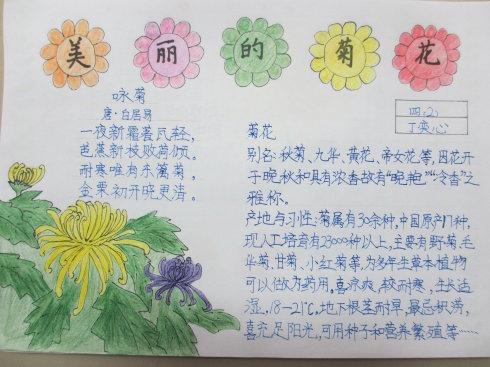 美丽的菊花
咏菊
唐·白居易
一夜新霜著瓦轻,
芭蕉新折败荷倾。
耐寒唯有东篱菊,
金粟初开晓更清。
四(2)
丁奕心
菊花
别名:秋菊、九华、黄花、帝女花等,因花开
于晚秋和具有浓香故有“晚艳”“冷香”之
雅称。
产地与习性:菊属有30余种,中国原产17种,
现人工培育有23000种以上,主要有野菊毛
华菊、甘菊、小红菊等,为多年生草本植物
可以做方药用,喜凉爽,较耐寒,生长适
湿,18-21℃,地下根茎耐旱,最忌积涝,
喜充足阳光,可用种子和营养繁殖等……